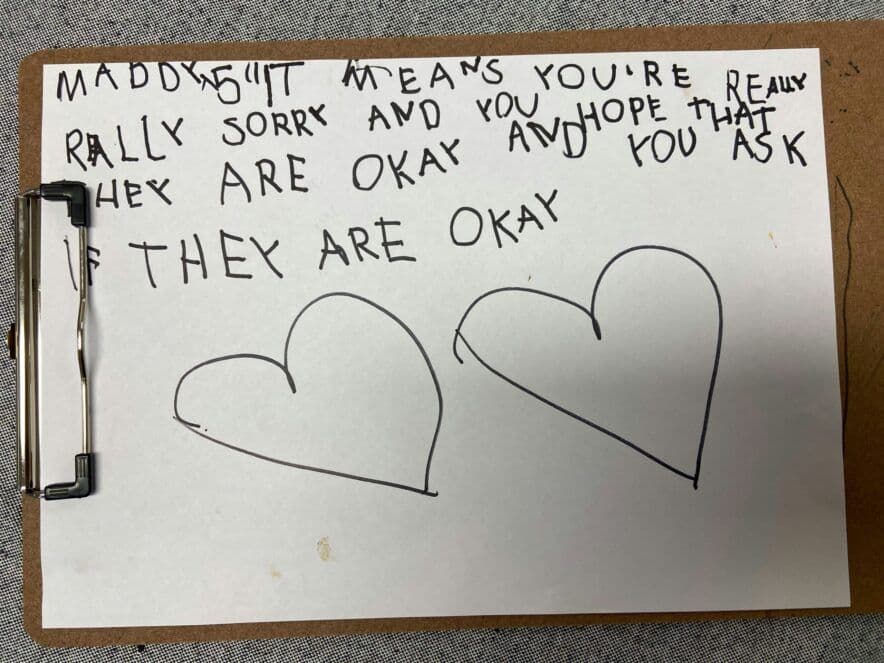 MADDY, 5 "IT MEANS YOU'RE REALLY
RALLY SORRY AND YOU HOPE THAT
THEY ARE OKAY AND YOU ASK
IF THEY ARE OKAY